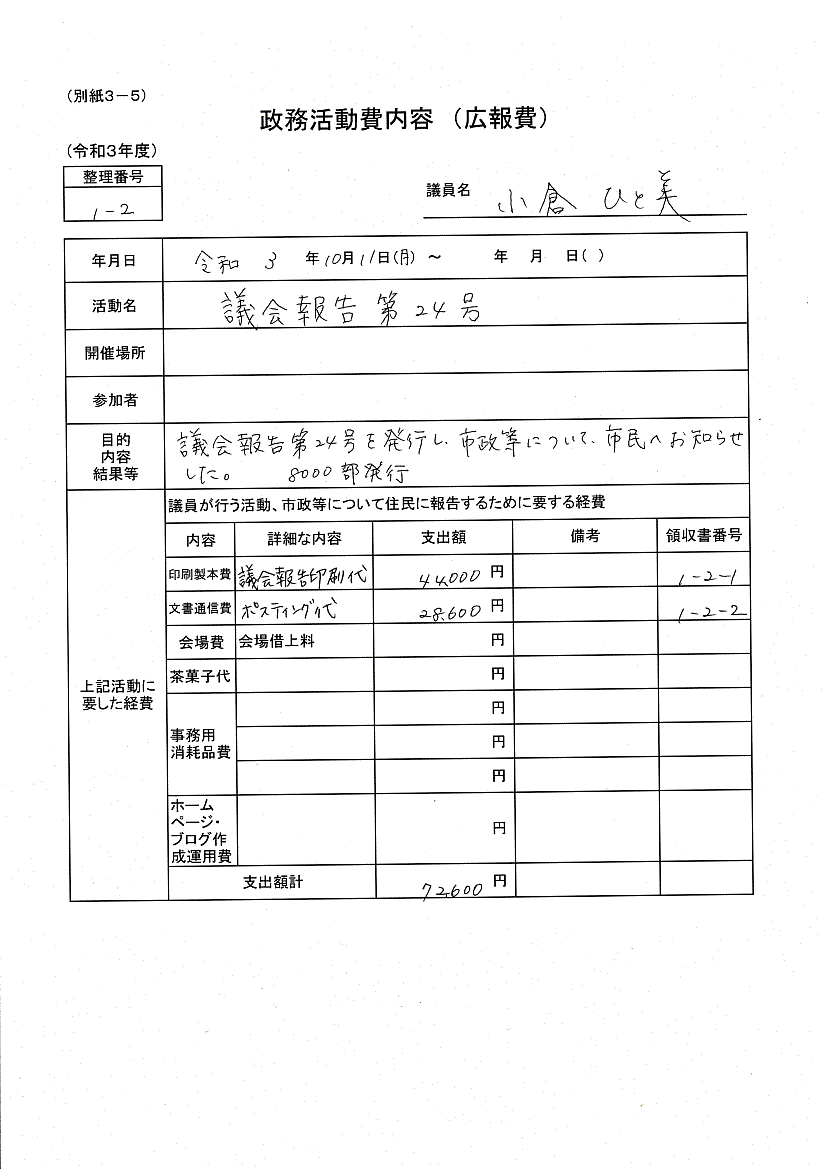 （別紙３－５）
政務活動費内容 （広報費）
（令和３年度）
整理番号
1-2
議員名 小倉 ひと美
年月日 令和 3 年10月11日(月) ～ 年 月 日( )
活動名 議会報告 第24号
開催場所
参加者
目的
内容
結果等
議会報告第24号を発行し、市政等について、市民へお知らせ
した。 8000部発行
上記活動に
要した経費
議員が行う活動、市政等について住民に報告するために要する経費
内容 詳細な内容 支出額 備考 領収書番号
印刷製本費 議会報告印刷代 44,000 円 1-2-1
文書通信費 ポスティング代 28,600 円 1-2-2
会場費 会場借上料 円
茶菓子代 円
事務用
消耗品費
円
円
円
ホーム
ページ・
ブログ作
成運用費
円
支出額計 72,600 円